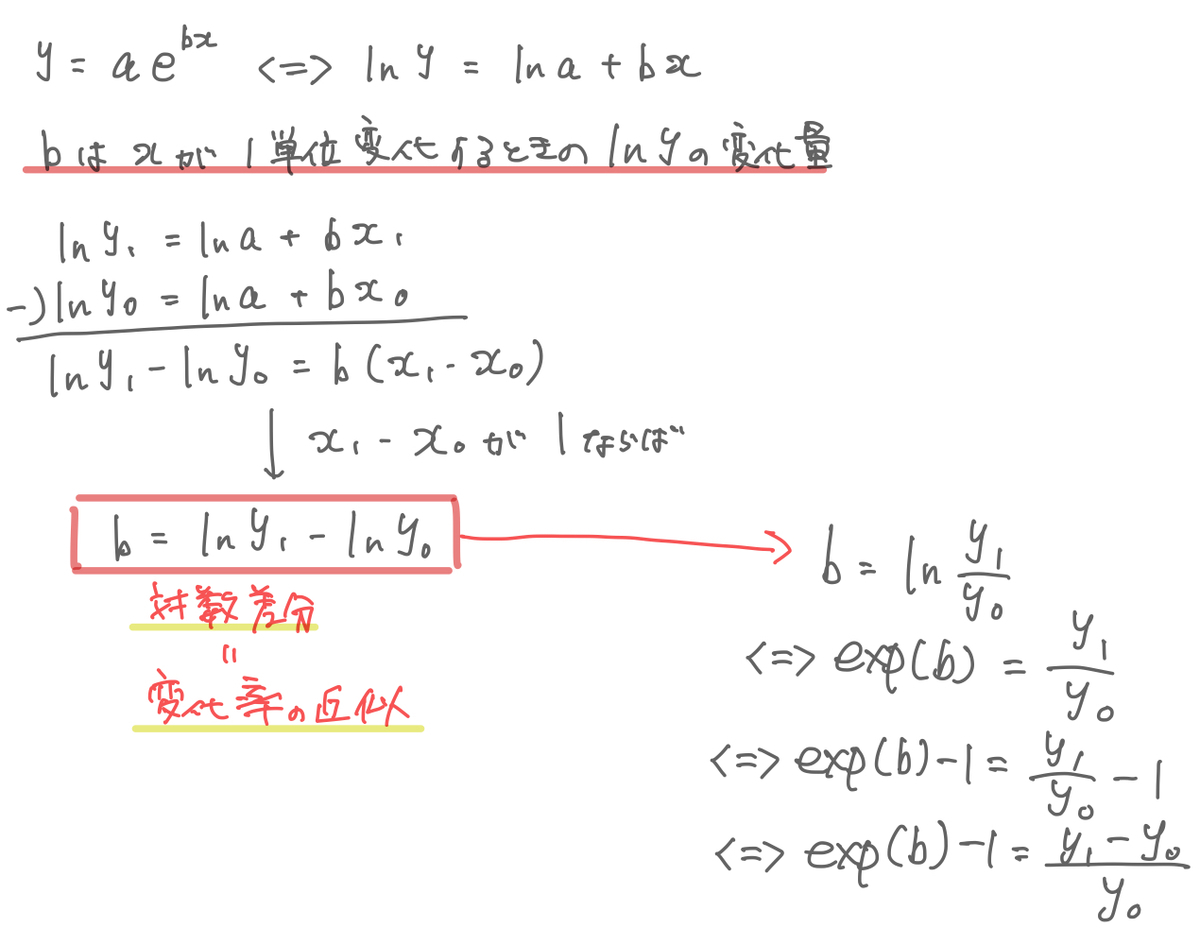 y = a e^{bx} <=> ln y = ln a + bx
bは x が 1 単位変化するときの ln y の変化量
ln y₁ = ln a + b x₁
-) ln y₀ = ln a + b x₀
ln y₁ - ln y₀ = b (x₁ - x₀)
↓ x₁ - x₀ が 1 ならば
b = ln y₁ - ln y₀
対数差分
=
変化率の近似
→ b = ln y₁/y₀
<=> exp(b) = y₁/y₀
<=> exp(b) - 1 = y₁/y₀ - 1
<=> exp(b) - 1 = (y₁ - y₀)/y₀